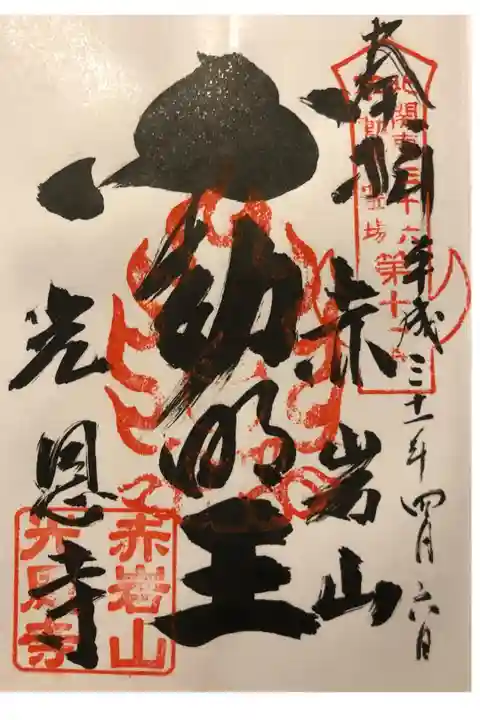 奉拝
平成三十一年四月六日
北関東三十六
不動尊霊場
第十
赤岩山
不動明王
光恩寺
赤岩山
光恩寺